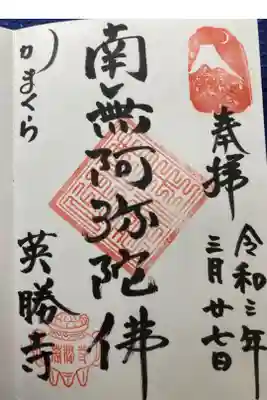 奉拝
令和三年
三月廿七日
南無阿弥陀佛
かまくら
英勝寺